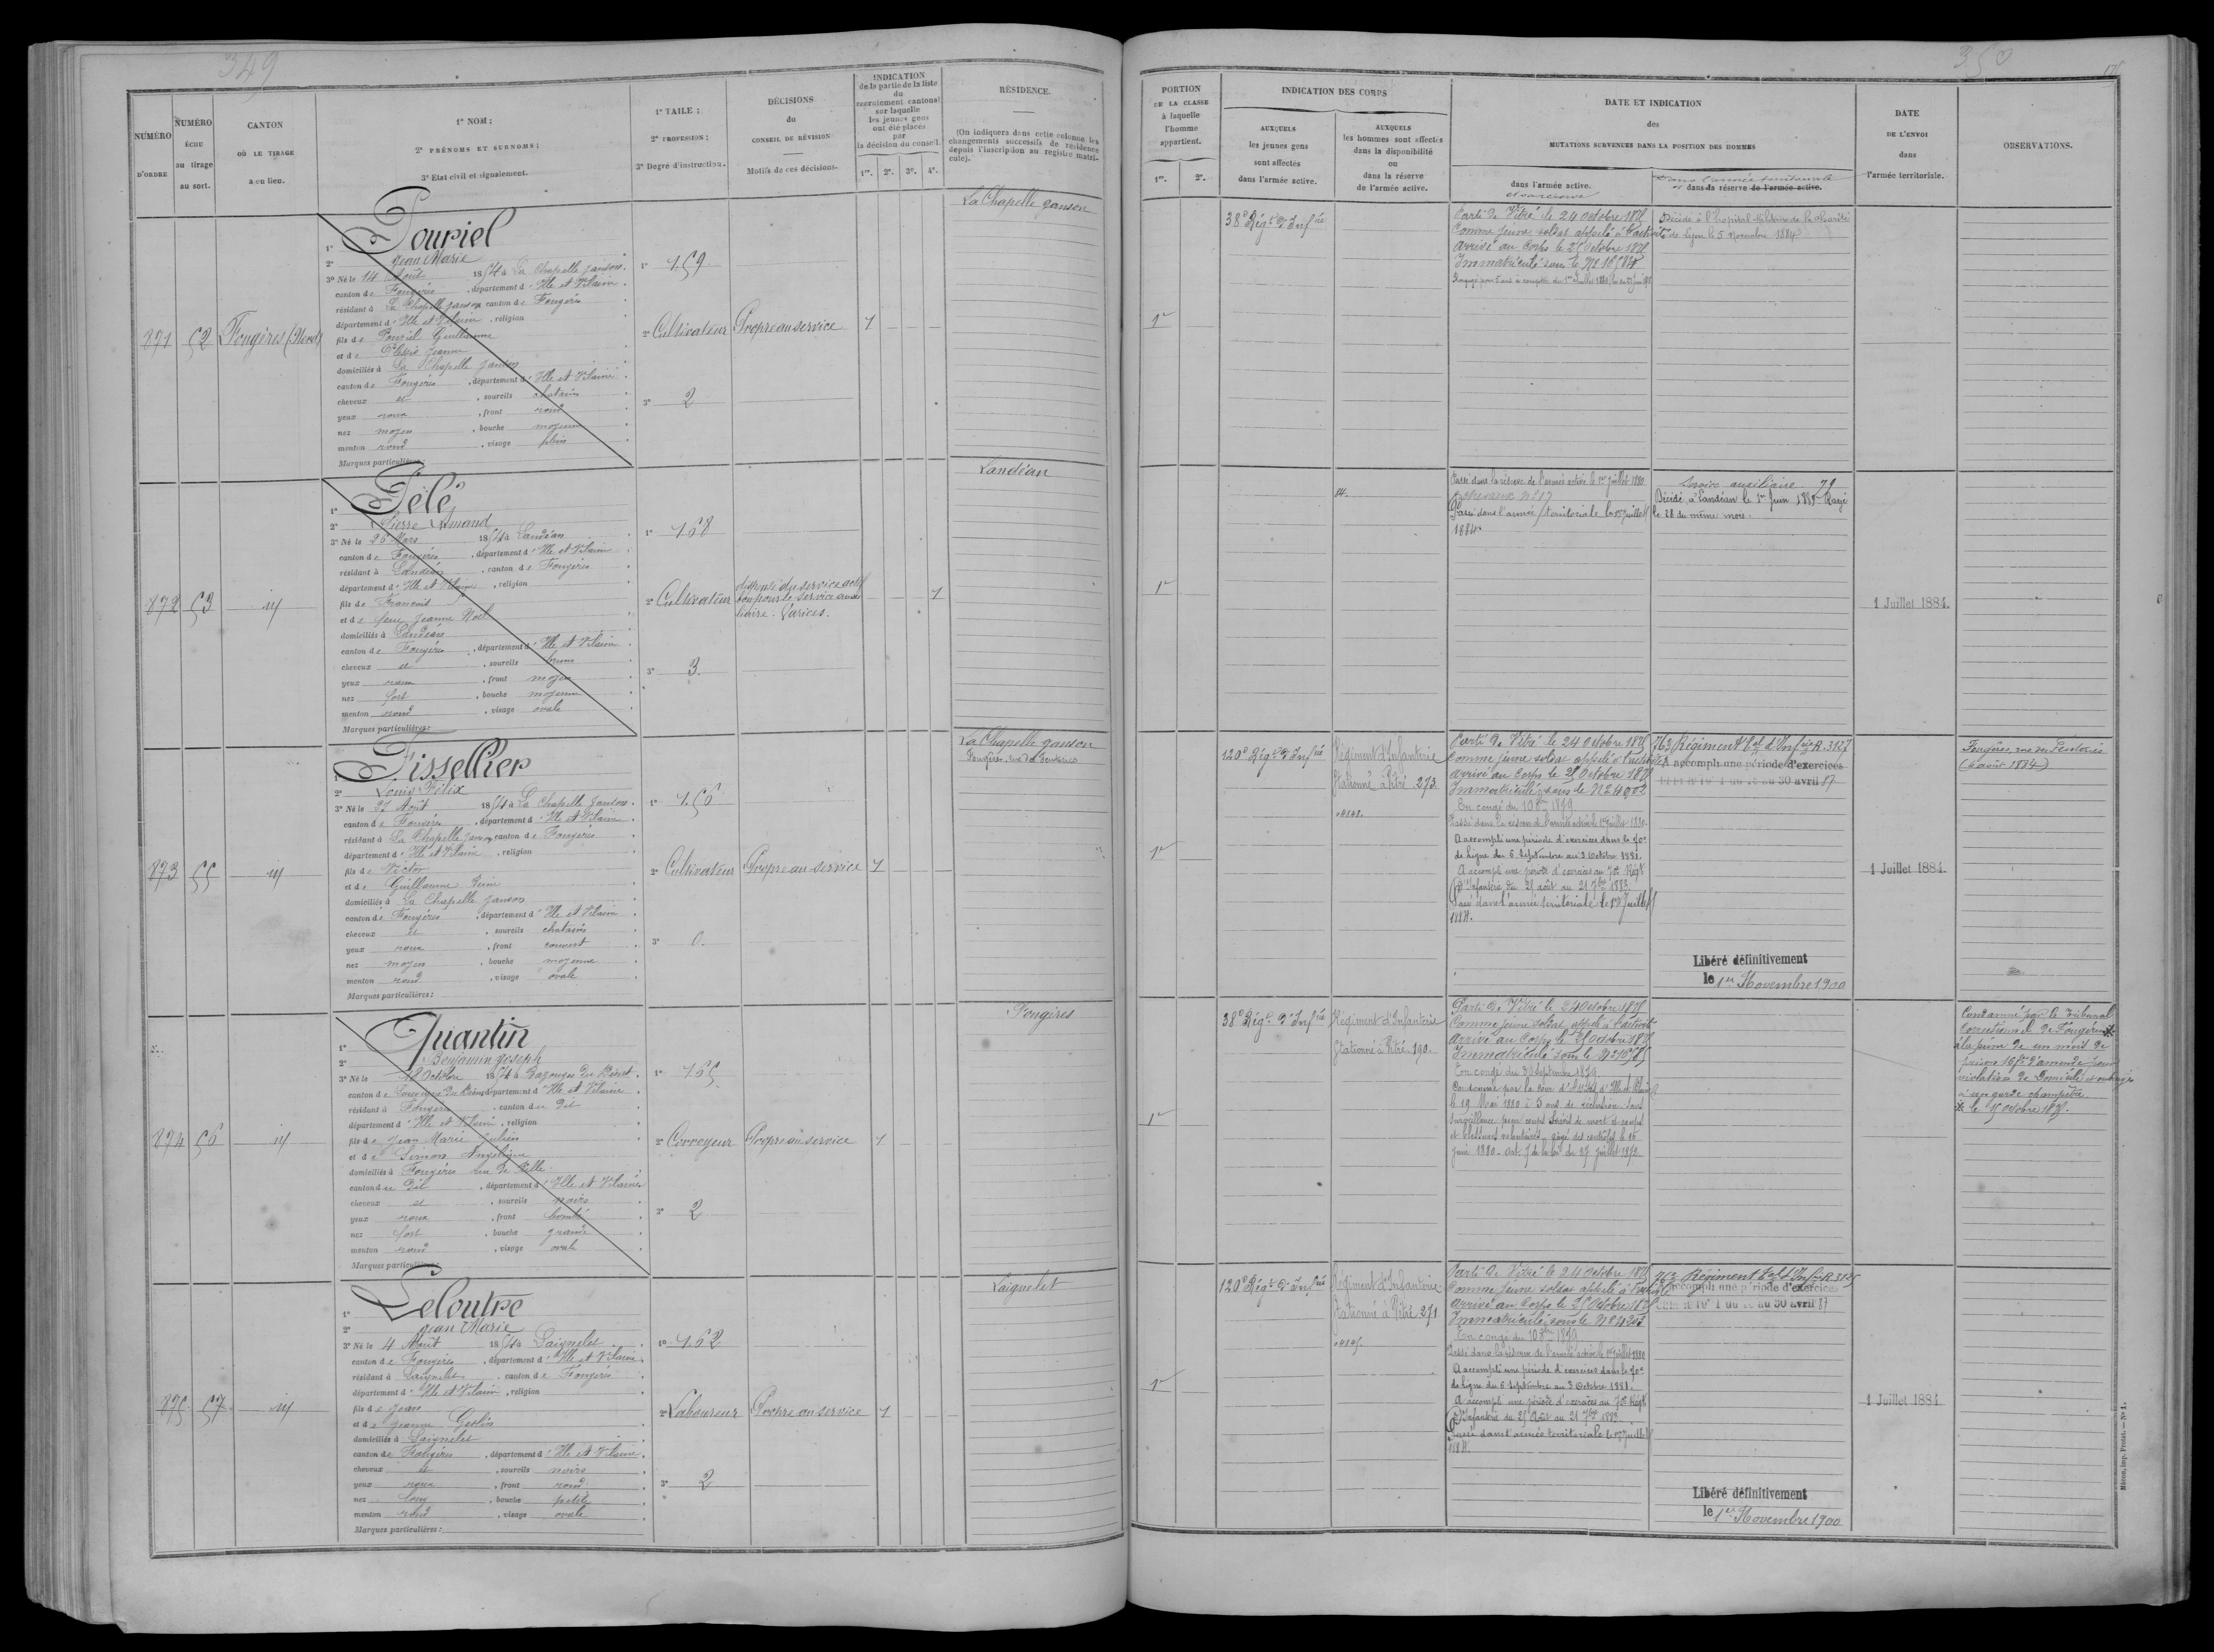 349
NUMÉRO
D'ORDRE
NUMÉRO
ÉCHU
au tirage
au sort.
CANTON
OÙ LE TIRAGE
a eu lieu.
1° NOM :
2° PRÉNOMS ET SURNOMS :
3° Etat civil et signalement.
1° TAILE :
2° PROFESSION :
3° Degré d'instruction.
DÉCISIONS
du
CONSEIL DE RÉVISION
Motifs de ces décisions.
INDICATION
de la partie de la liste
du
recrutement cantonal
sur laquelle
les jeunes gens
ont été placés
par
la décision du conseil.
1re. 2e. 3e. 4e.
RÉSIDENCE.
(On indiquera dans cette colonne les
changements successifs de résidence
depuis l'inscription au registre matri-
cule).
871
52
Fougères (Nord)
1° Pouriel
2° Jean Marie
3° Né le 14 Août 1854 à La Chapelle Janson.
canton de Fougères, département d'Ille et Vilaine.
résidant à La Chapelle Janson canton de Fougères
département d'Ille et Vilaine, religion
fils de Pouriel Guillaume
et de Plessis Jeanne
domiciliés à La Chapelle Janson
canton de Fougères, département d'Ille et Vilaine.
cheveux et, sourcils chatains
yeux roux, front rond
nez moyen, bouche moyenne
menton rond, visage plein
Marques particulières :
1° 1.59
2° Cultivateur
3° 2
Propre au service
1
La Chapelle Janson
872
53
id
1° Pélé
2° Pierre Amand
3° Né le 26 Mars 1854 à Landéan
canton de Fougères, département d'Ille et Vilaine
résidant à Landéan, canton de Fougères
département d'Ille et Vilaine, religion
fils de François
et de feue Jeanne Noël
domiciliés à Landéan
canton de Fougères, département d'Ille et Vilaine
cheveux et, sourcils bruns
yeux roux, front moyen
nez fort, bouche moyenne
menton rond, visage ovale
Marques particulières :
1° 1.68
2° Cultivateur
3° 3.
dispensé du service actif
bon pour le service auxi
liaire. Varices.
1
Landéan
873
55
id
1° Tissellier
2° Louis Félix
3° Né le 27 Août 1854 à La Chapelle Janson.
canton de Fougères, département d'Ille et Vilaine.
résidant à La Chapelle Janson, canton de Fougères
département d'Ille et Vilaine, religion
fils de Victor
et de Guillaume Reine
domiciliés à La Chapelle Janson
canton de Fougères, département d'Ille et Vilaine
cheveux et, sourcils chatains
yeux roux, front couvert
nez moyen, bouche moyenne
menton rond, visage ovale
Marques particulières :
1° 1.56
2° Cultivateur
3° 0.
Propre au service
1
La Chapelle Janson
874
56
id
1° Quantin
2° Benjamin Joseph
3° Né le 18 Octobre 1854 à Bazouges du Désert.
résidant à Fougères, canton du dit
département d'Ille et Vilaine, religion
fils de Jean Marie Julien
et de Simon Angélique
canton du dit, département d'Ille et Vilaine
cheveux et, sourcils noirs
yeux roux, front bombé
nez fort, bouche grande
menton rond, visage ovale
Marques particulières :
1° 1.65
2° Corroyeur
3° 2
Propre au service
1
Fougères
875
57
id
1° Leloutre
2° Jean Marie
3° Né le 4 Août 1854 à Laignelet.
canton de Fougères, département d'Ille et Vilaine.
résidant à Laignelet, canton de Fougères
département d'Ille et Vilaine, religion
fils de Jean
et de Jeanne Geslin
domiciliés à Laignelet
canton de Fougères, département d'Ille et Vilaine.
cheveux et, sourcils noirs
yeux roux, front rond
nez long, bouche petite
menton rond, visage ovale
Marques particulières :
1° 1.62
2° Laboureur
3° 2
Propre au service
1
Laignelet
350
PORTION
DE LA CLASSE
à laquelle
l'homme
appartient.
1re. 2e.
INDICATION DES CORPS
AUXQUELS
les jeunes gens
sont affectés
dans l'armée active.
AUXQUELS
les hommes sont affectés
dans la disponibilité
ou
dans la réserve
de l'armée active.
DATE ET INDICATION
des
MUTATIONS SURVENUES DANS LA POSITION DES HOMMES
dans l'armée active.
et sa réserve
dans l'armée territoriale
et dans la réserve de l'armée active.
DATE
DE L'ENVOI
dans
l'armée territoriale.
OBSERVATIONS.
1re
38e Régt d'Infrie
Parti de Vitré le 24 Octobre 1875
Comme jeune soldat appelé à l'activité
Arrivé au Corps le 25 Octobre 1875
Décédé à l'hôpital Militaire de la Charité
de Lyon le 5 Novembre 1884
1re
84.
Passé dans la réserve de l'armée active le 1er Juillet 1880.
Passé dans l'armée territoriale le 1er Juillet
1884.
Service auxiliaire 79
Décédé à Landéan le 1er Juin 1885. Rayé
le 28 du même mois.
1 Juillet 1884.
1re
120e Régt d'Infrie
Régiment d'Infanterie
Stationné à Vitré 273
Parti de Vitré le 24 Octobre 1875
Comme jeune soldat appelé à l'activité
Arrivé au Corps le 25 Octobre 1875
Immatriculé sous le N° 4902
En congé du 10 8bre 1879
Passé dans la réserve de l'armée active le 1er Juillet 1880.
A accompli une période d'exercices dans le 70e
de ligne du 6 Septembre au 3 Octobre 1881.
A accompli une période d'exercices au 70e Régt
d'Infanterie du 25 août au 21 7bre 1883.
Passé dans l'armée territoriale le 1er Juillet
1884.
A accompli une période d'exercices
au 30 avril 87
Libéré définitivement
le 1er Novembre 1900
1 Juillet 1884.
(6 août 1884)
1re
38e Régt d'Infrie
Régiment d'Infanterie
Stationné à Vitré. 190.
Parti de Vitré le 24 Octobre 1875
Comme jeune soldat appelé à l'activité
Arrivé au Corps le 25 Octobre 1875
En congé du 30 Septembre 1879.
Condamné par la Cour d'Assises d'Ille et Vilaine
le 19 Mai 1880 à 5 ans de réclusion sans
surveillance pour coups suivis de mort et coups
et blessures volontaires, rayé des contrôles le 16
Juin 1880. Art. 7 de la loi du 27 Juillet 1872.
Condamné par le Tribunal
Correctionnel de Fougères *
à la peine de un mois de
prison 16f d'amende pour
violation de domicile et outrages
à un garde champêtre.
1re
120e Régt d'Infrie
Régiment d'Infanterie
Stationné à Vitré 271
Parti de Vitré le 24 Octobre 1875
Comme jeune soldat appelé à l'activité
Arrivé au Corps le 25 Octobre 1875
En congé du 10 8bre 1879.
Passé dans la réserve de l'armée active le 1er Juillet 1880
A accompli une période d'exercices dans le 70e
de ligne du 6 Septembre au 3 Octobre 1881.
A accompli une période d'exercices au 70e Régt
d'Infanterie du 25 Août au 21 7bre 1883.
Passé dans l'armée territoriale le 1er Juillet
1884.
accompli une période d'exercices
au 30 avril 87
Libéré définitivement
le 1er Novembre 1900
1 Juillet 1884
Mâcon, imp. Protat. — N° 1.